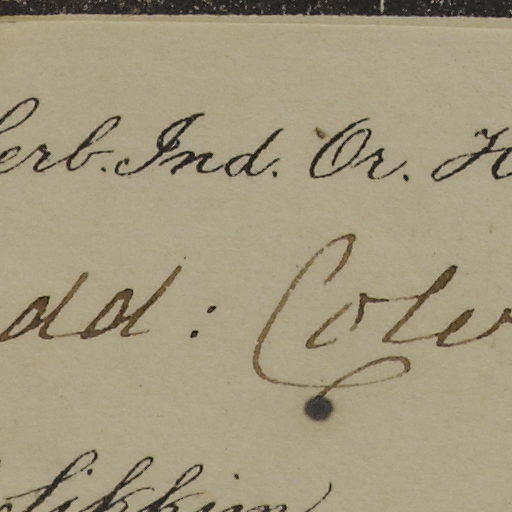 erb. Ind. Or. H
dd: Cole
Sikkim